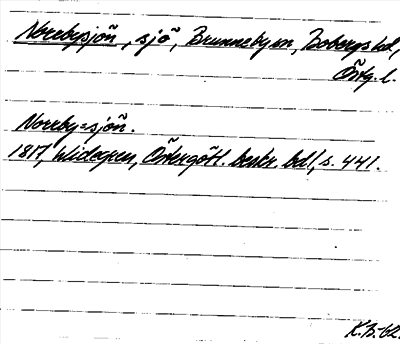 Norrbysjön, sjö, Brunneby sn, Bobergs hd,
Östg. l.
Norrby-sjön.
1817, Widegren, Östergötl. beskr. bd 1, s. 441.
K.B.-62.